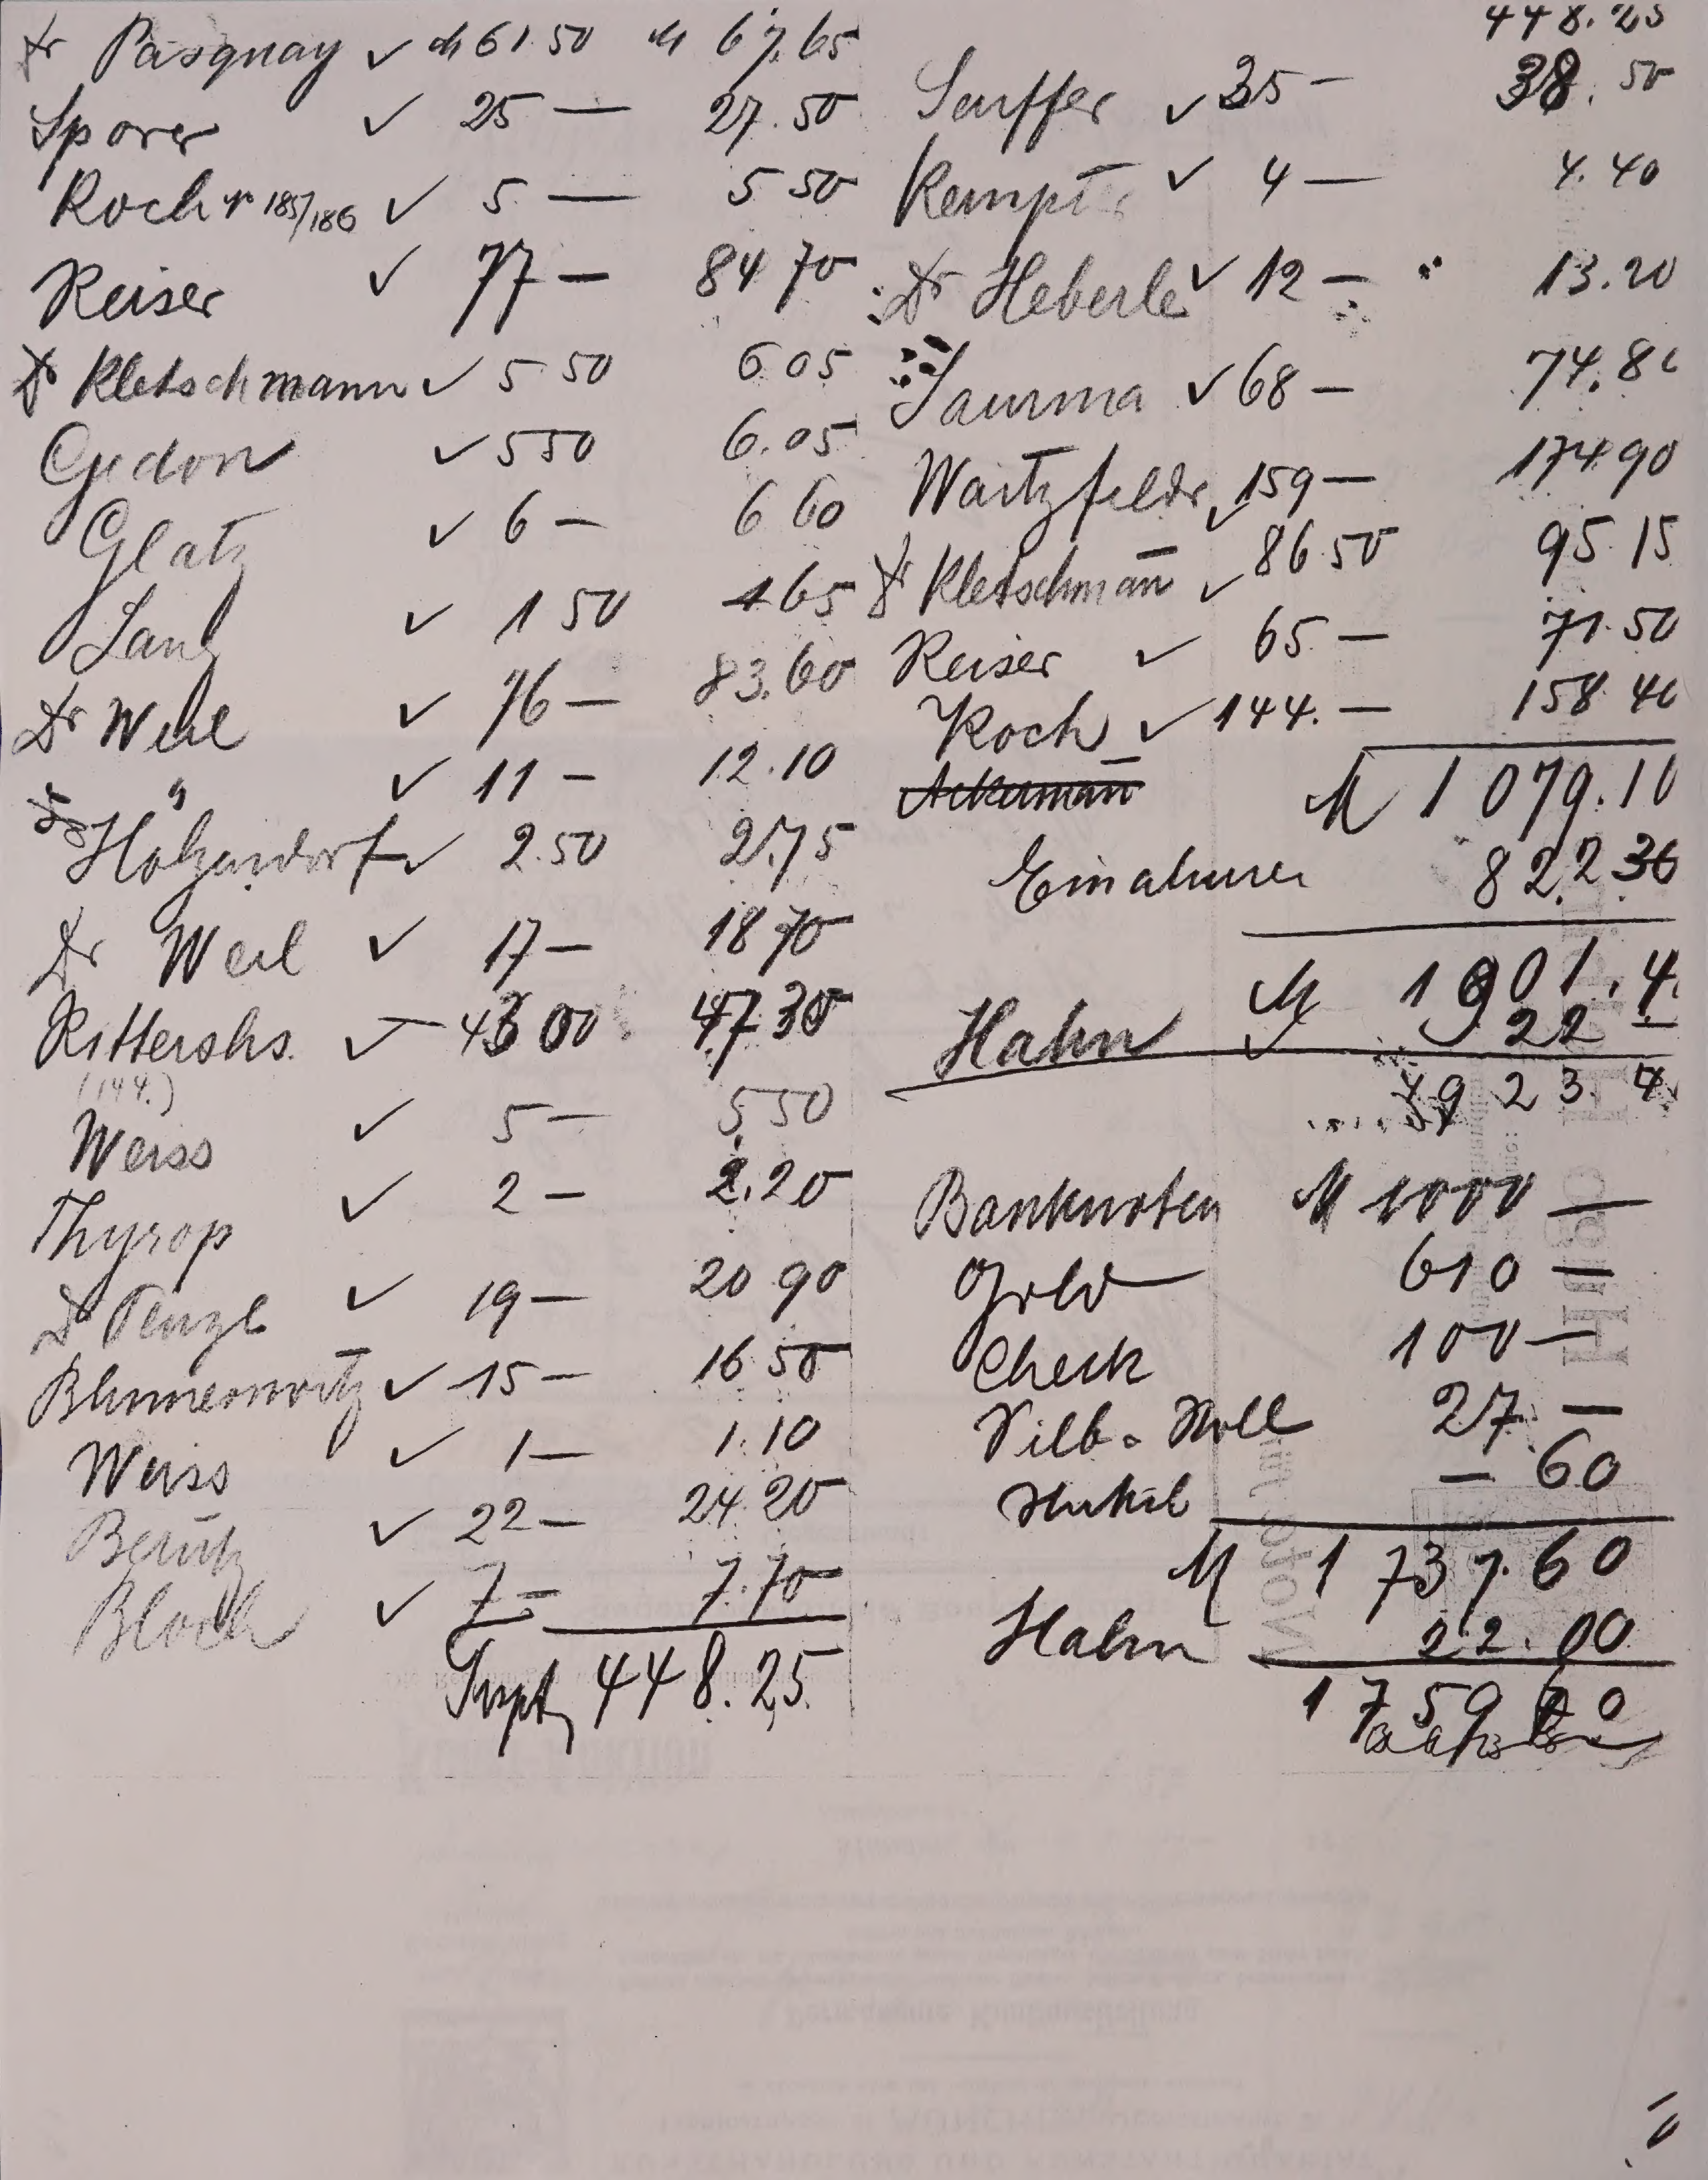 Dr Pasquay ✓ M 61.50 M 67.65
Sporer ✓ 25 — 27.50
Koch Nr 185/186 ✓ 5 — 5 50
Reiser ✓ 77 — 84 70
Dr Kletschmann ✓ 5 50 6 05
Gedon ✓ 5 50 6.05
Glatz ✓ 6 — 6 60
Lang ✓ 1 50 1 65
Dr Weil ✓ 76 — 83.60
" ✓ 11 — 12.10
Holzendorf ✓ 2.50 2.75
Dr Weil ✓ 17 — 18 70
Rittershs. ✓ — 43 00 47 30
(144.)
Weiss ✓ 5 — 5 50
Thyrop ✓ 2 — 2.20
Dr Penzl ✓ 19 — 20 90
✓ 15 — 16 50
Weiss ✓ 1 — 1.10
✓ 22 — 24.20
Bloch ✓ 7 — 7.70
448.25
448.25
✓ 35 — 38.50
✓ 4 — 4.40
Dr Heberle ✓ 12 — 13.20
Saurma ✓ 68 — 74.80
Waitzfelder ✓ 159 — 174.90
Dr Kletschman̄ ✓ 86.50 95.15
Reiser ✓ 65 — 71.50
Koch ✓ 144. — 158 40
Ackerman̄ M 1079.10
Einahmen 822 30
M 1901.4
Hahn ✓ 22 —
1923.4
Banknoten M 1000 —
Gold 610 —
Check 100 —
27 —
Nickel — 60
M 1737.60
Hahn 22.00
1759 60